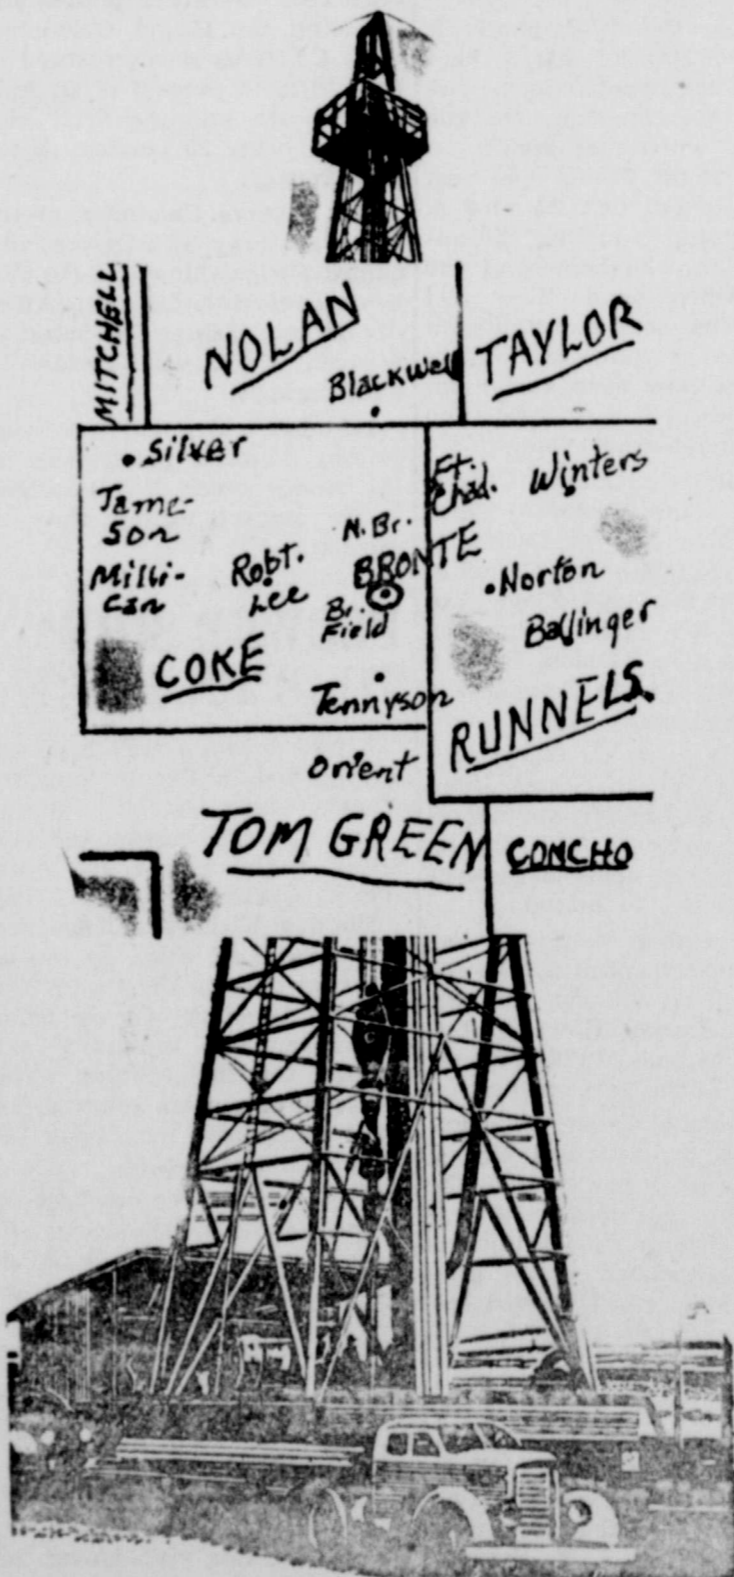 MITCHELL
NOLAN
TAYLOR
Blackwell
Silver
Jame-
son
Milli-
can
Robt.
Lee
N. Br.
BRONTE
Br.
Field
COKE
Tennyson
Ft.
Chad.
Winters
Norton
Ballinger
RUNNELS
Orient
TOM GREEN
CONCHO